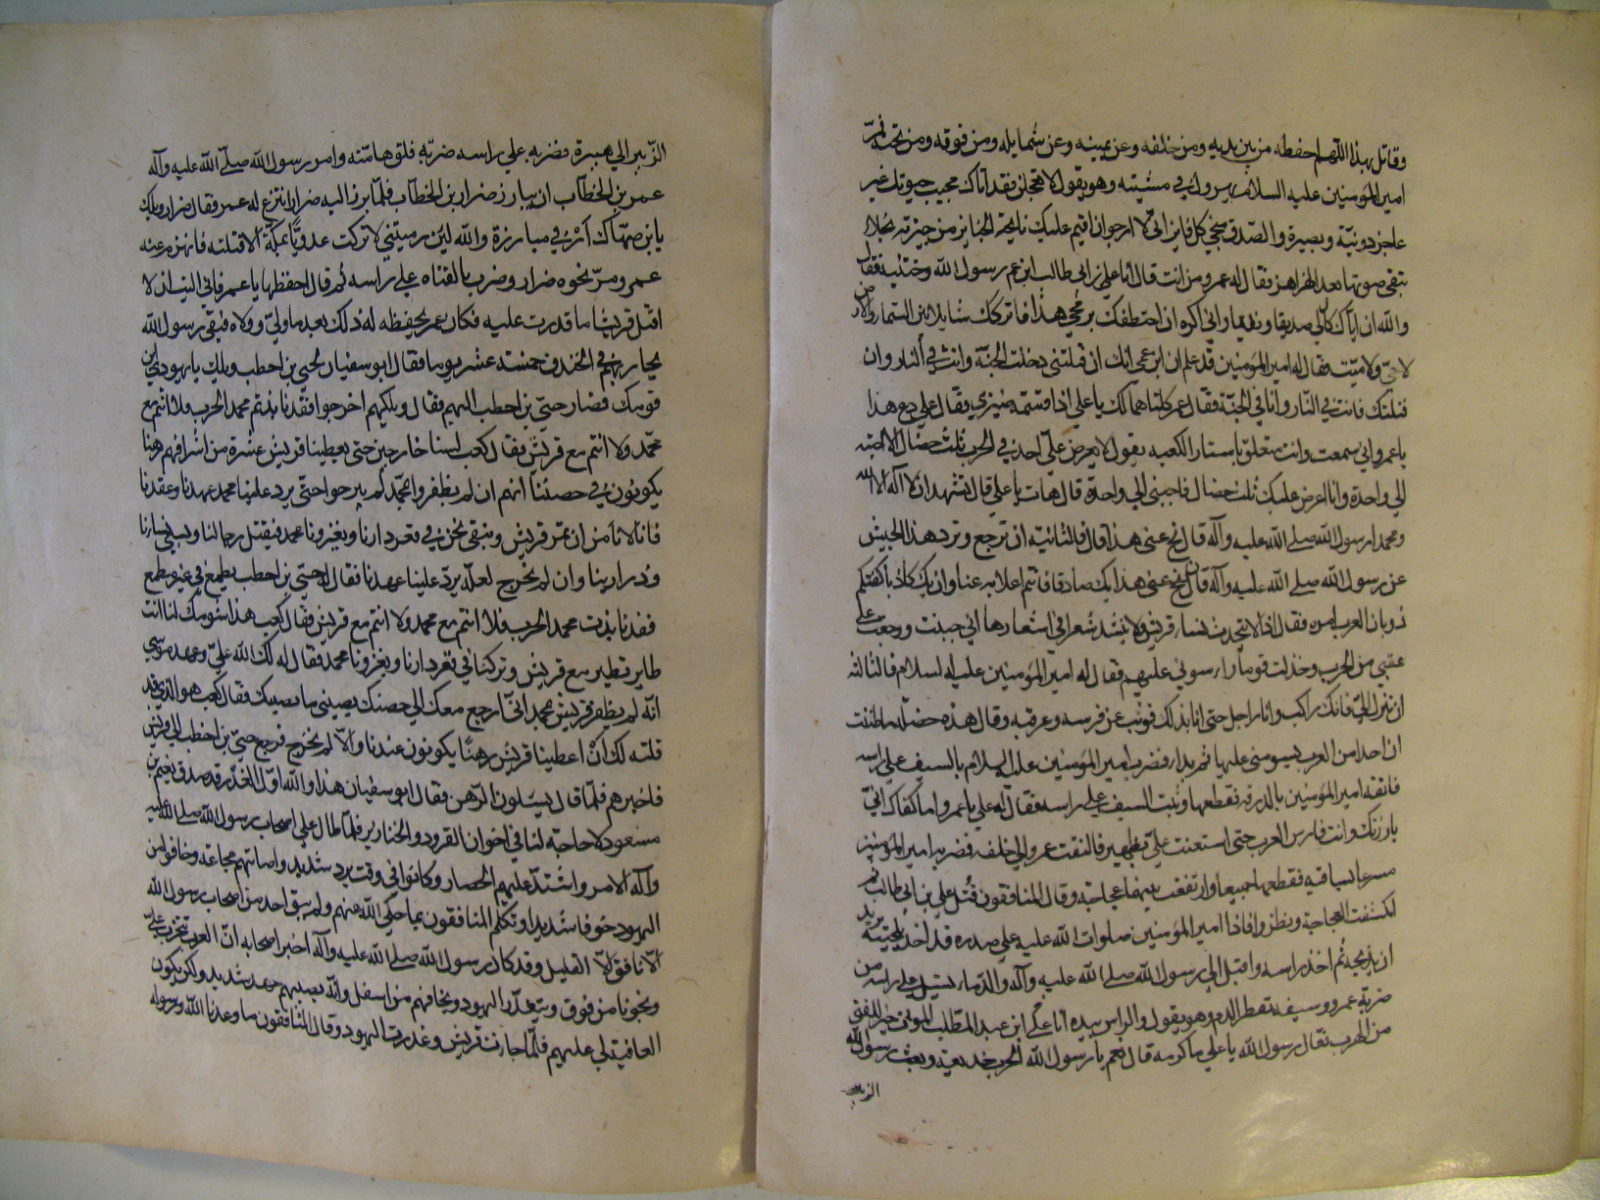 وقاتل بهذا اللهم احفظه من بين يديه ومن خلفه وعن يمينه وعن شمايله ومن فوقه ومن تحته فمر
امير المؤمنين عليه السلام يهرول في مشيته وهو يقول لا تعجلن فقد اتاك مجيب صوتك غير
عاجز ذونية وبصيرة والصدق منجي كل فايز اني لارجوا ان اقيم عليك نايحة الجنايز من ضربة نجلا
يبقى صوتها بعد الهزاهز فقال له عمرو من انت قال انا علي بن ابي طالب ابن عم رسول الله وختنه فقال
والله ان اباك كان لي صديقا ونديما واني اكره ان اختطفك برمحي هذا فاتركك شايلا بين السماء والارض
لا حي ولا ميت فقال له امير المؤمنين قد علم ابن عمي انك ان قتلتني دخلت الجنة وانت في النار وان
قتلتك فانت في النار وانا في الجنة فقال عمرو كلتاهما لك يا علي اذا قسمة ضيزى فقال علي دع هذا
يا عمرو اني سمعت وانت متعلق باستار الكعبة يقول لا يعرض علي احد في الحرب ثلث خصال الا اجبته
الى واحدة وانا اعرض عليك ثلث خصال فاجبني الى واحدة قال هات يا علي قال تشهد ان لا اله الا الله
ومحمدا رسول الله صلى الله عليه وآله قال نح عني هذا قال فالثانية ان ترجع وترد هذا الجيش
عن رسول الله صلى الله عليه وآله فان يك صادقا فانتم اعلا به عينا وان يك كاذبا كفتكم
ذوبان العرب امره فقال اذا لا تتحدث نساء قريش ولا ينشد شعرا في اشعارها اني جبنت ورجعت على
عقبي من الحرب وخذلت قوما راسوني عليهم فقال له امير المؤمنين عليه السلام فالثالثة
ان تنزل الي فانك راكب وانا راجل حتى انابذك فوثب عن فرسه وعرقبه وقال هذه خصلة ما ظننت
ان احدا من العرب يسومني عليها ثم بدا فضرب امير المؤمنين عليه السلام بالسيف على راسه
فاتقاه امير المؤمنين بالدرقة فقطعها وثبت السيف على راسه فقال له علي يا عمرو اما كفاك اني
بارزتك وانت فارس العرب حتى استعنت علي بظهير فالتفت عمرو الى خلفه فضربه امير المؤمنين
مسرعا على ساقيه فقطعهما جميعا وارتفعت بينهما عجاجة وقال المنافقون قتل علي بن ابي طالب ثم
انكشفت العجاجة ونظروا فاذا امير المؤمنين صلوات الله عليه على صدره قد اخذ بلحيته يريد
ان يذبحه ثم اخذ راسه واقبل الى رسول الله صلى الله عليه وآله والدماء تسيل على راسه من
ضربة عمرو وسيفه تقطر الدم وهو يقول والراس بيده انا علي ابن عبد المطلب الموت خير للفتى
من الهرب فقال رسول الله يا علي ماكرته قال نعم يا رسول الله الحرب خديعة وبعث رسول الله
الزبير
الزبير الى هبيرة فضربه على راسه ضربة فلق هامته وامر رسول الله صلى الله عليه وآله
عمر بن الخطاب ان يبارز ضرار بن الخطاب فلما برز اليه ضرار انتزع له عمر فقال ضرار ويلك
يا بن صهاك اترى في مبارزة والله لئن رميتني لا تركت عدويا بمكة الا قتلته فانهزم عنه
عمر ومر نحوه ضرار وضرب بالقناة على راسه ثم قال احفظها يا عمر فاني اليت ان لا
اقتل قريشا ما قدرت عليه فكان عمر يحفظه له ذلك بعد ما ولي وولاه فبقى رسول الله
يحاربهم في الخندق خمسة عشر يوما فقال ابو سفيان لحيي بن اخطب ويلك يا يهودي اين
قومك فصار حيي بن اخطب اليهم فقال ويلكم اخرجوا فقد نابذتم محمد الحرب فلا انتم مع
محمد ولا انتم مع قريش فقال كعب لسنا خارجين حتى يعطينا قريش عشرة من اشرافهم رهنا
يكونون في حصننا انهم ان لم يظفروا بمحمد لم يبرحوا حتى يرد علينا محمد عهدنا وعقدنا
فانا لا نامن ان تمر قريش ونبقى نحن في عقر دارنا ويغزونا محمد فيقتل رجالنا ويسبي نساءنا
وذرارينا وان لم نخرج لعله يرد علينا عهدنا فقال له حيي بن اخطب تطمع في غير مطمع
فقد نابذت محمد الحرب فلا انتم مع محمد ولا انتم مع قريش فقال كعب هذا من شومك انما انت
طاير تطير مع قريش وتركتنا في عقر دارنا ويغزونا محمد فقال له لك الله علي وعهد موسى
انه لم يظفر قريش بمحمد اني ارجع معك الى حصنك يصيبني ما يصيبك فقال كعب هو الذي قد
قلته لك ان اعطينا قريش رهنا يكونون عندنا والا لم نخرج فرجع حيي بن اخطب الى قريش
فاخبرهم فلما قال يسئلون الرهن فقال ابو سفيان هذا والله اول الغدر قد صدق نعيم بن
مسعود لا حاجة لنا في اخوان القرود والخنازير فلما طال على اصحاب رسول الله صلى الله عليه
وآله الامر واشتد عليهم الحصار وكانوا في وقت برد شديد واصابتهم مجاعة وخافوا من
اليهود خوفا شديدا وتكلم المنافقون بما حكى الله عنهم ولم يبق احد من اصحاب رسول الله
الا نافق الا القليل وقد كان رسول الله صلى الله عليه وآله اخبر اصحابه ان العرب تتحزب على
ويجونا من فوق ويغدر اليهود ويخافهم من اسفل وانه يصيبهم جهد شديد ولكن يكون
العاقبة لي عليهم فلما جاءت قريش وغدرت اليهود وقال المنافقون ما وعدنا الله ورسوله